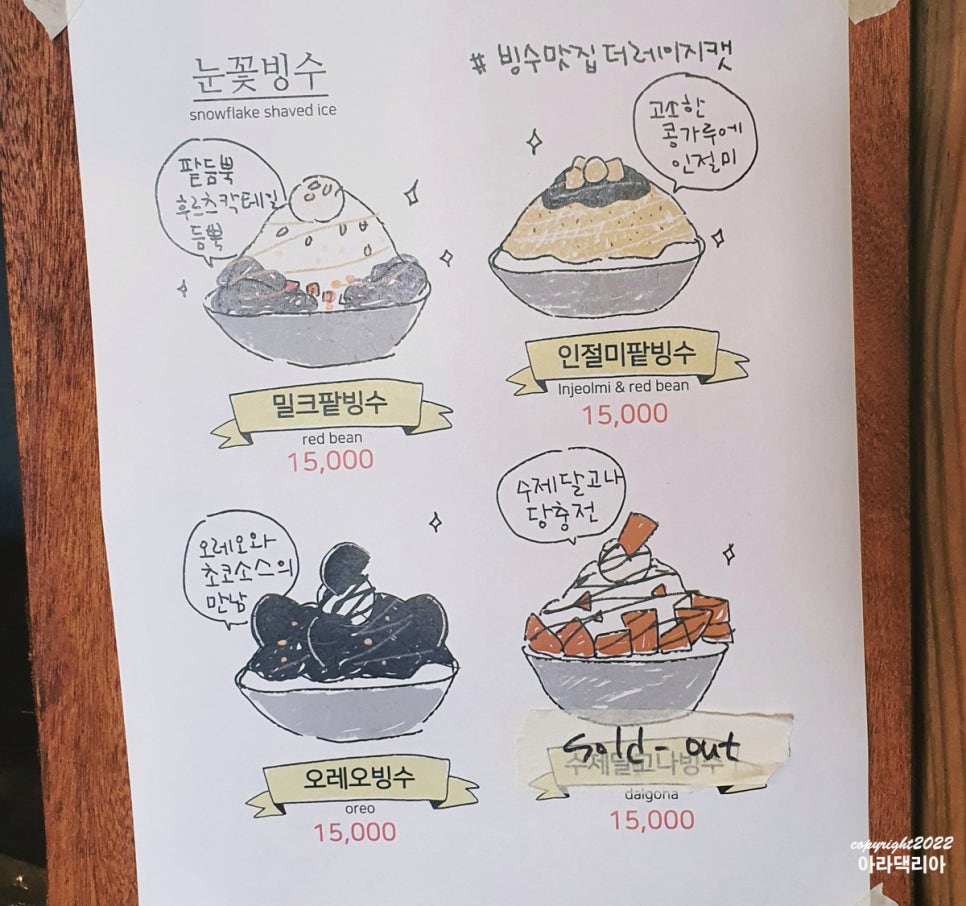 눈꽃빙수
snowflake shaved ice
# 빙수맛집 더레이지캣
팥듬뿍
후르츠칵테일
듬뿍
밀크팥빙수
red bean
15,000
고소한
콩가루에
인절미
인절미팥빙수
Injeolmi & red bean
15,000
오레오와
초코소스의
만남
오레오빙수
oreo
15,000
수제달고나
당충전
Sold-out
수제달고나빙수
dalgona
15,000
copyright2022
아라댁리아